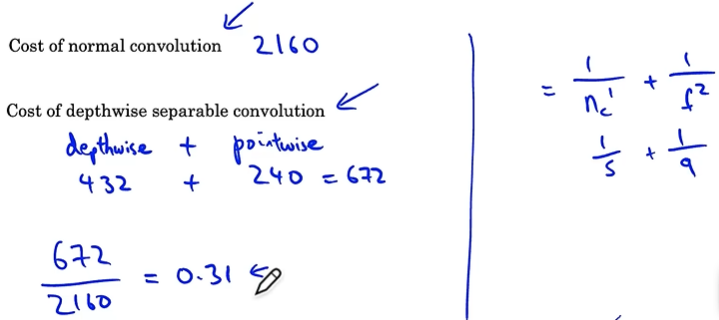 Cost of normal convolution 2160
Cost of depthwise separable convolution
depthwise + pointwise
432 + 240 = 672
672
2160
= 0.31
= 1/n_c' + 1/f²
1/5 + 1/9